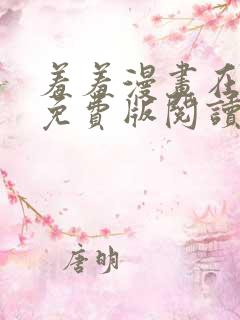 羞羞漫畫在
免費版閱讀
唐明